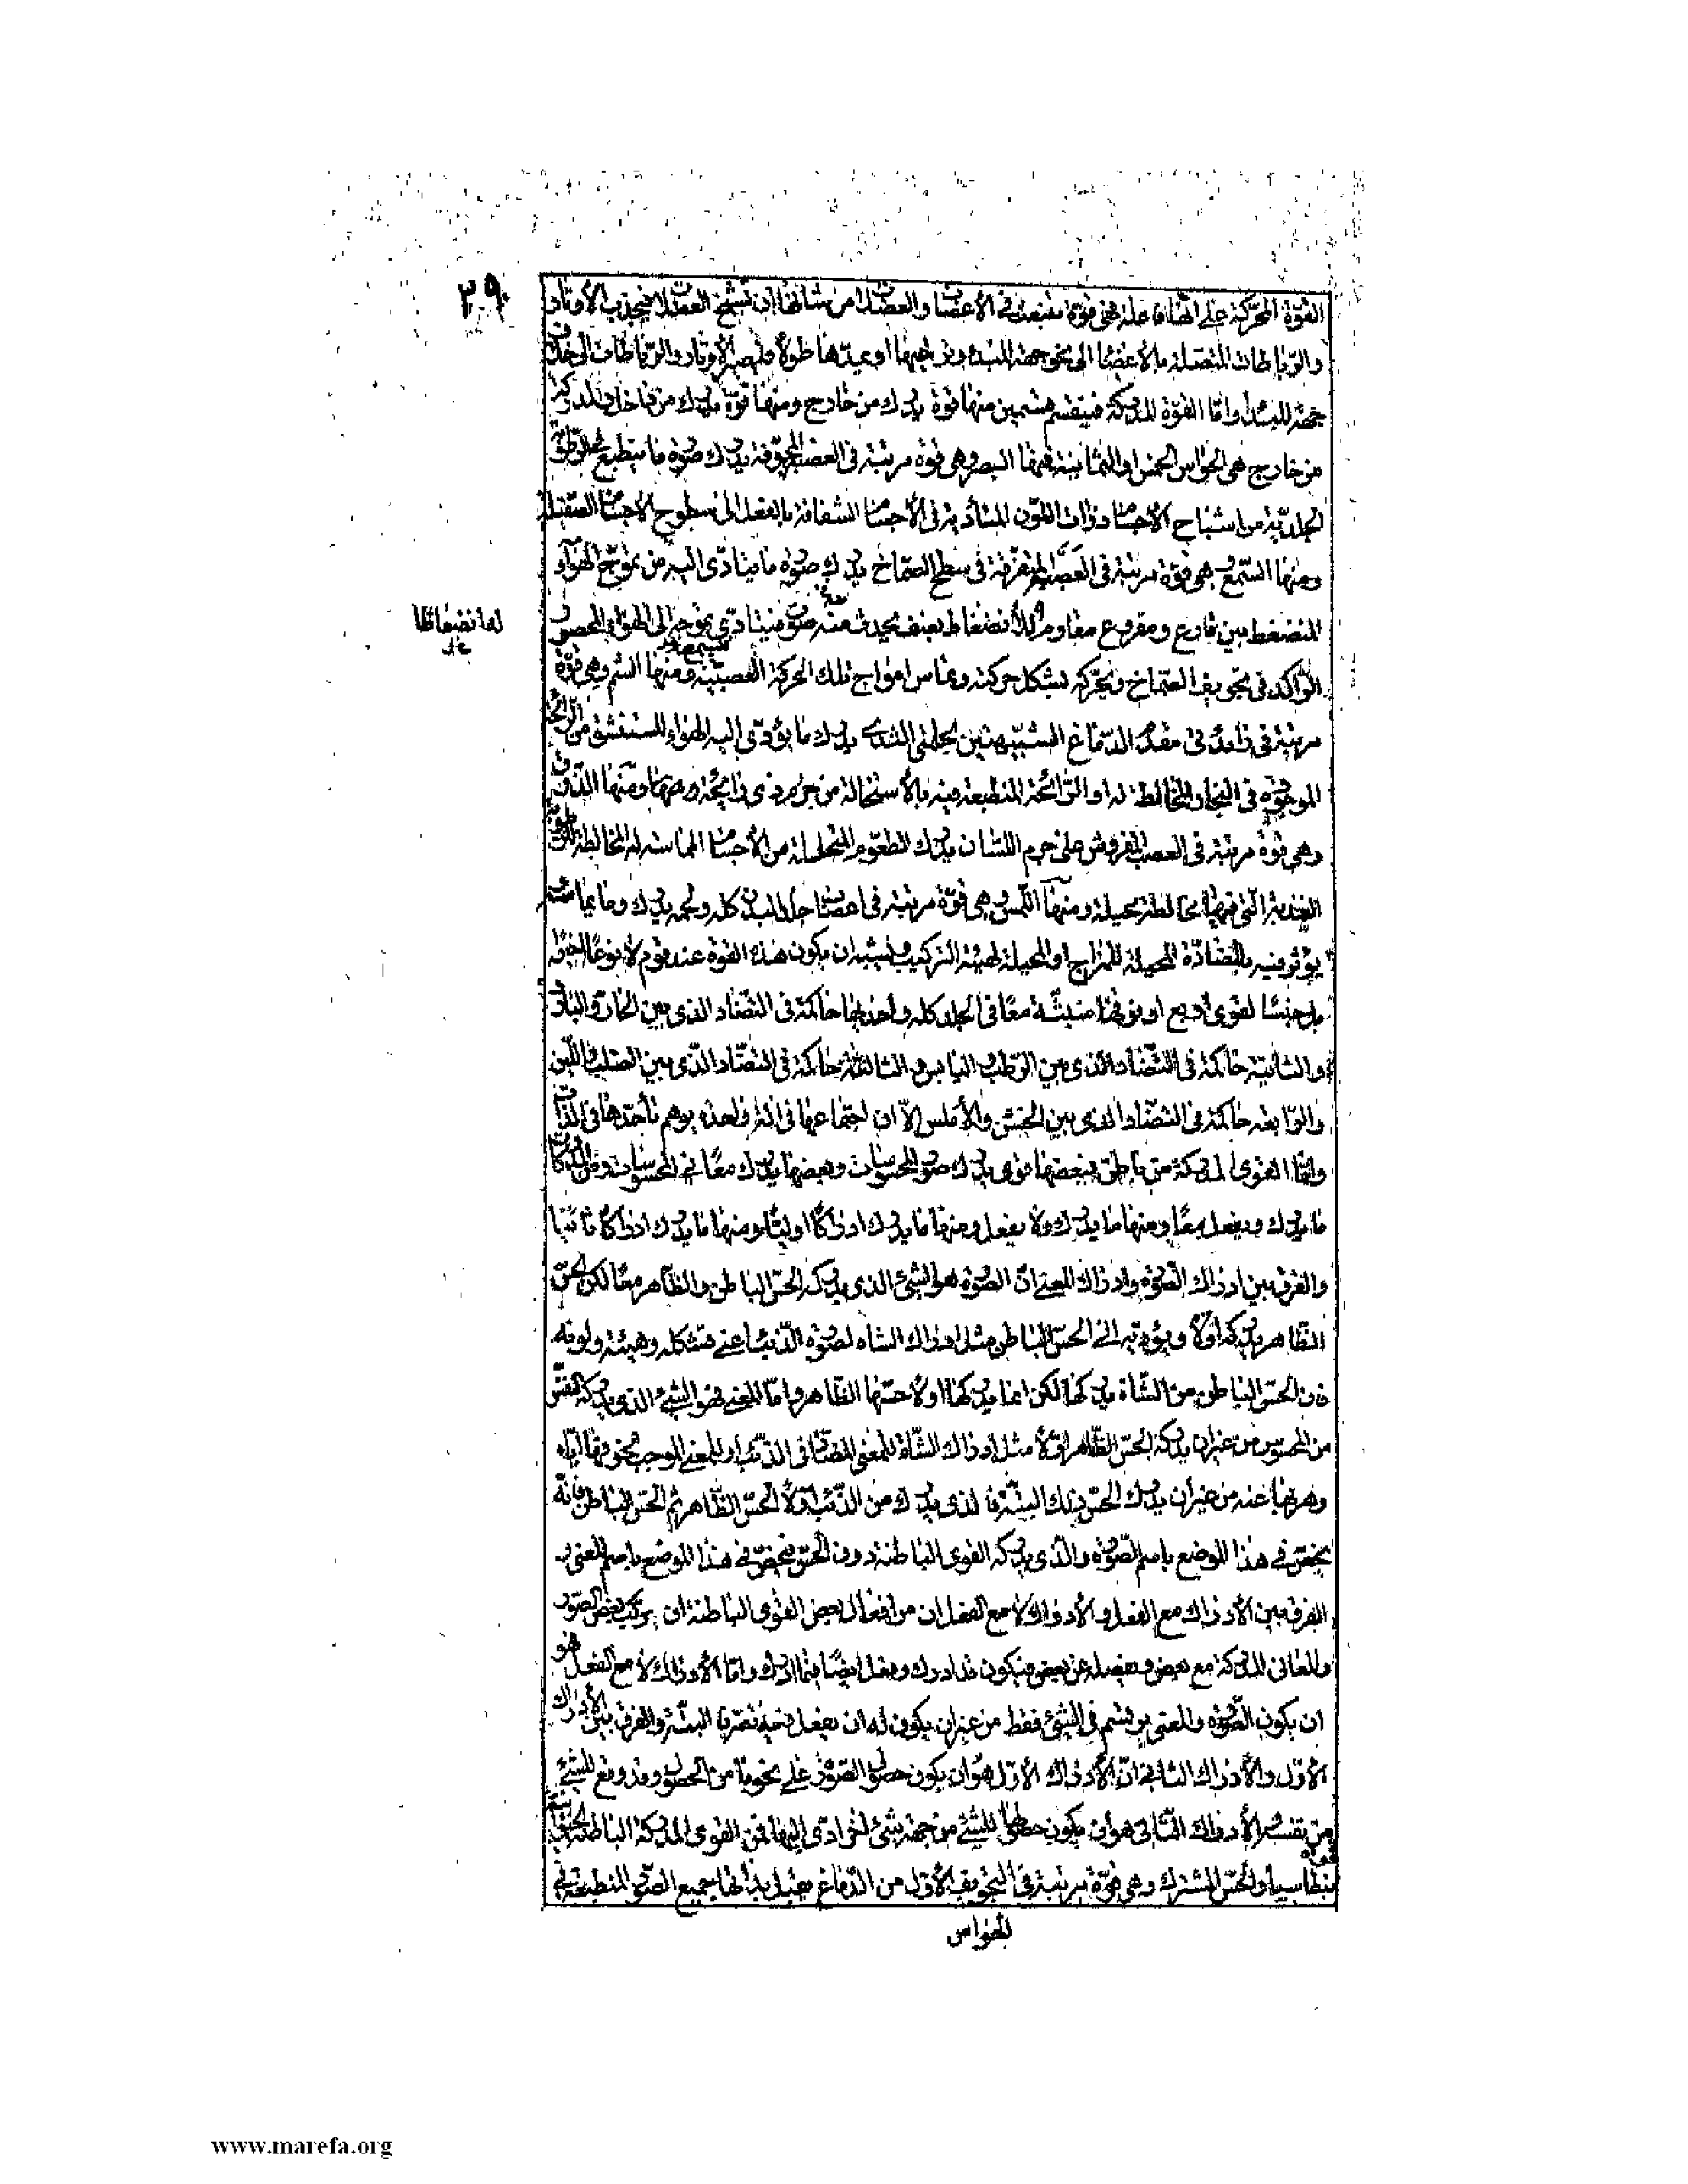 ٢٩
القوّة المحرّكة على انّها فاعلة هى قوّة تنبعث فى الأعصاب والعضلات من شأنها ان تشنّج العضلات فيجذب الأوتار
والرّباطات المتصلة بالأعضاء الى نحو جهة المبدء او يرخيها او يمدّها طولا فيصير الأوتار والرّباطات الى خلاف
جهة المبدء وامّا القوّة المدركة فينقسم قسمين منها قوة يدرك من خارج ومنها قوة يدرك من داخل والمدركة
من خارج هى الحواس الخمس او الثمانية فمنها البصر وهى قوة مرتبة فى العصبة المجوفة يدرك صورة ما ينطبع فى الرطوبة
الجلدية من اشباح الأجسام ذوات اللون المتأدية فى الأجسام الشفافة بالفعل الى سطوح الأجسام الصقيلة
ومنها السّمع وهى قوة مرتبة فى العصب المتفرقة فى سطح الصّماخ يدرك صورة ما يتأدّى اليه من تموّج الهوآء
المنضغط بين قارع ومقروع مقاوم له لأنضغاط بعنف يحدث منه صوت فيتأدّى تموجه الى الهوآء المحصور
له انضغاطا
الراكد فى تجويف الصّماخ ويحرّكه بشكل حركته وتماس امواج تلك الحركة العصبيّة ومنها الشم وهى قوّة
مرتبة فى زائدتى مقدّم الدّماغ الشبيهتين بحلمتى الثدى يدرك ما يؤدّى اليه الهواء المستنشق من الرائحة
الموجودة فى البخار المخالط له او الرّائحة المنطبعة فيه بالأستحالة من جرم ذى رايحة ومنها الذوق
وهى قوة مرتبة فى العصب المفروش على جرم اللسان يدرك الطعوم المتحللة من الأجسام المماسة له المخالطة للرطوبة
العذبة التى فيه مخالطة محيلة ومنها اللمس وهى قوّة مرتبة فى اعصاب جلد البدن كله ولحمه يدرك ما يماسّه
يؤثر فيه بالمضادّة المحيلة للمزاج او المحيلة لهيئة التركيب ويشبه ان يكون هذه القوة عند قوم لا نوعًا اخيرا
بل جنسًا لقوى أربع او فوقها منبثّة معًا فى الجلد كله واحديها حاكمة فى التضاد الذى بين الحار والبارد
والثانية حاكمة فى التّضاد الذى بين الرّطب واليابس والثالثة حاكمة فى التضّاد الذّى بين الصلب واللّين
والرّابعة حاكمة فى التضّاد الذى بين الخشن والأملس الاّ ان اجتماعها فى آلة واحدة يوهم تأحدها فى الذات
وامّا القوى المدركة من باطن فبعضها قوى يدرك صور المحسوسات وبعضها يدرك معانى المحسوسات ومن المدركات
ما يدرك ويفعل معًا ومنها ما يدرك ولا يفعل ومنها ما يدرك ادراكًا اوليّا ومنها ما يدرك ادراكًا ثانيًا
والفرق بين ادراك الصّورة وادراك المعنى انّ الصّورة هو الشئ الذى يدركه الحسّ الباطن والظّاهر معًا لكن الحسّ
الظّاهر يدركه اوّلا ويؤدّيه الى الحسّ الباطن مثل ادراك الشاة لصورة الذّئب اعنى تشكله وهيئته ولونه
فان الحسّ الباطن من الشّاة يدركها لكن انما يدركها اولا حسّها الظّاهر وامّا المعنى فهو الشئ الذى يدركه النفس
من المحسوس من غير ان يدركه الحسّ الظّاهر اوّلا مثل ادراك الشّاة للمعنى المضادّ فى الذّئب او للمعنى الموجب لخوفها ايّاه
وهربها عنه من غير أن يدرك الحسّ ذلك البتّة فالذى يدرك من الذّئب اوّلا الحسّ الظّاهر ثم الحسّ الباطن فانّه
يخصّ فى هذا الموضع باسم الصّورة والذّى يدركه القوى الباطنة دون الحسّ فيخصّ فى هذا الموضع باسم المعنى و
الفرق بين الأدراك مع الفعل والأدراك لا مع الفعل ان من افعال بعض القوى الباطنة ان يركّب بعض الصّور
والمعانى المدركة مع بعض ويفصله عن بعض فيكون قد ادرك وفعل ايضًا فيما ادرك وامّا الأدراك لا مع الفعل هو
ان يكون الصّورة والمعنى يرتسم فى الشئ فقط من غير ان يكون له ان يفعل فيه تصرّفا البتّة والفرق بين الأدراك
الأوّل والأدراك الثانى انّ الأدراك الأوّل هو ان يكون حصول الصّورة على نحو ما من الحصول قد وقع للشئ
من نفسه والأدراك الثّانى هو أن يكون حصولها للشئ من جهة شئ اخر ادّى اليها فمن القوى المدركة الباطنة الحيوانية قوة
بنطاسيا والحسّ المشترك وهى قوّة مرتبة فى التجويف الأوّل من الدّماغ يقبل بذاتها جميع الصّور المنطبعة فى
الحواس
www.marefa.org